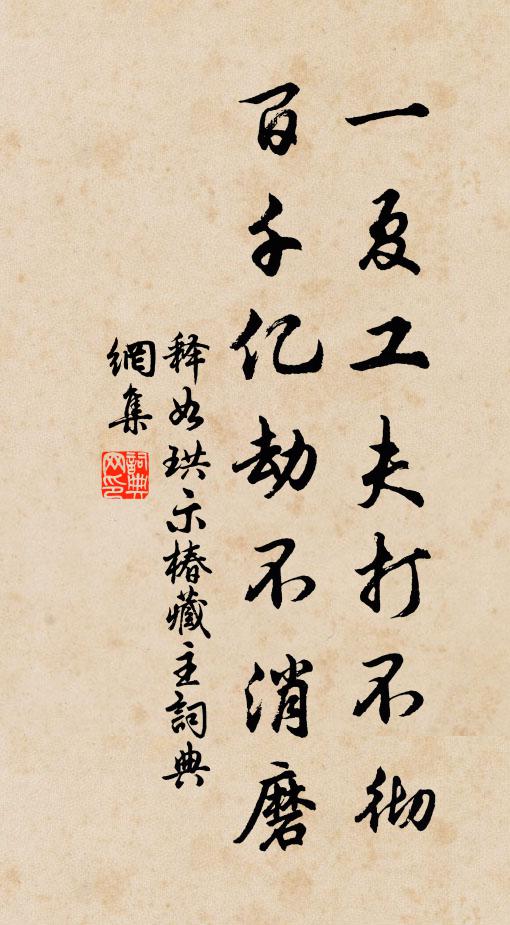 一夏工夫打不彻
百千亿劫不消磨
释如珙示椿藏主詞典
網集
詞典
网印